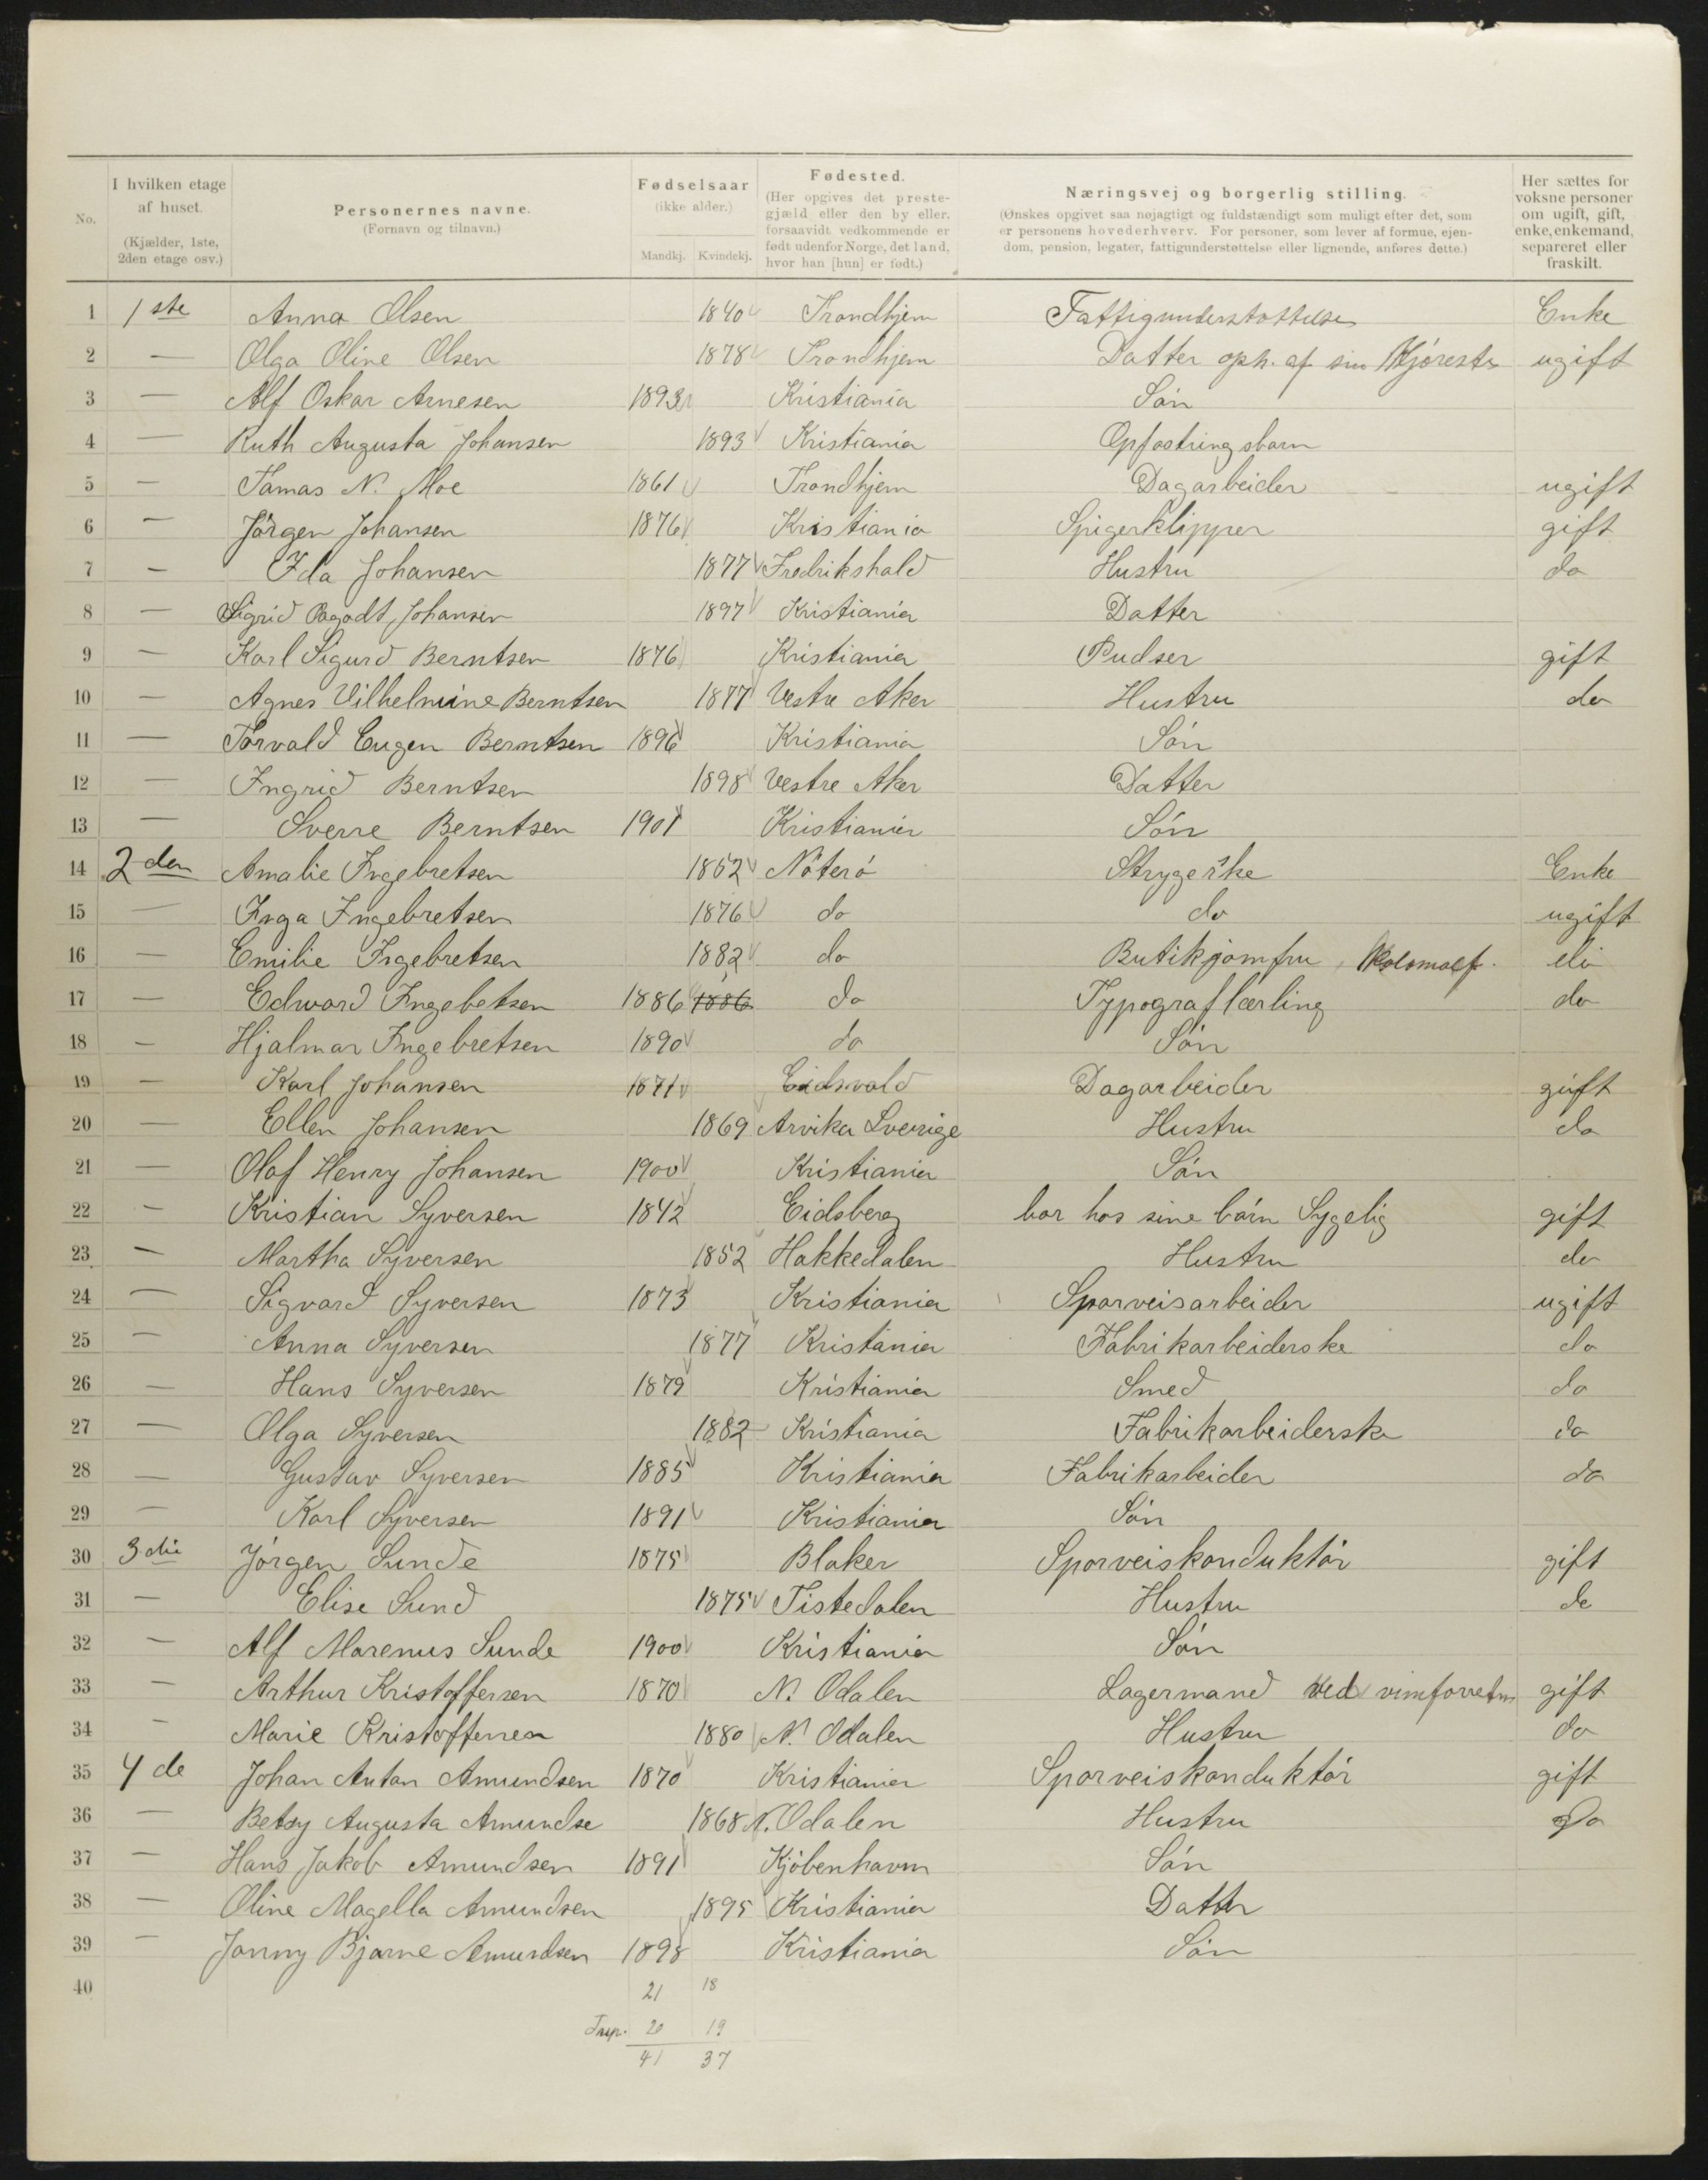 No. I hvilken etage af huset. (Kjælder, 1ste, 2den etage osv.) Personernes navne. (Fornavn og tilnavn.) Fødselsaar (ikke alder.) Mandkj. Kvindekj. Fødested. (Her opgives det prestegjæld eller den by eller, forsaavidt vedkommende er født udenfor Norge, det land, hvor han [hun] er født.) Næringsvej og borgerlig stilling. (Ønskes opgivet saa nøjagtigt og fuldstændigt som muligt efter det, som er personens hovederhverv. For personer, som lever af formue, ejendom, pension, legater, fattigunderstøttelse eller lignende, anføres dette.) Her sættes for voksne personer om ugift, gift, enke, enkemand, separeret eller fraskilt.
1 1ste Anna Olsen 1840 Trondhjem Fattigunderstøttelse Enke
2 — Olga Oline Olsen 1878 Trondhjem Datter oph. af sin ugift
3 — Alf Oskar Arnesen 1893 Kristiania Søn
4 — Ruth Augusta Johansen 1893 Kristiania Opfostringsbarn
5 — Tamas N. Moe 1861 Trondhjem Dagarbeider ugift
6 — Jörgen Johansen 1876 Kristiania Spigerklipper gift
7 — Ida Johansen 1877 Fredrikshald Hustru do
8 — Sigrid Johansen 1897 Kristiania Datter
9 — Karl Sigurd Berntsen 1876 Kristiania Pudser gift
10 — Agnes Vilhelmine Berntsen 1877 Vestre Aker Hustru do
11 — Torvald Eugen Berntsen 1896 Kristiania Søn
12 — Ingrid Berntsen 1898 Vestre Aker Datter
13 — Sverre Berntsen 1901 Kristiania Søn
14 2den Amalie Ingebretsen 1852 Nöterö Strygerske Enke
15 — Inga Ingebretsen 1876 do do ugift
16 — Emilie Ingebretsen 1882 do Butikjomfru do
17 — Edward Ingebetsen 1886 1886 do Typograflærling do
18 — Hjalmar Ingebretsen 1890 do Søn
19 — Karl Johansen 1871 Eidsvold Dagarbeider gift
20 — Ellen Johansen 1869 Arvika Sverige Hustru do
21 — Olaf Henry Johansen 1900 Kristiania Søn
22 — Kristian Syversen 1842 Eidsberg bor hos sine børn Sygelig gift
23 — Martha Syversen 1852 Hakkedalen Hustru do
24 — Sigvard Syversen 1873 Kristiania Sporveisarbeider ugift
25 — Anna Syversen 1877 Kristania Fabrikarbeiderske do
26 — Hans Syversen 1879 Kristiania Smed do
27 — Olga Syversen 1882 Kristiania Fabrikarbeiderske do
28 — Gustav Syversen 1885 Kristiania Fabrikarbeider do
29 — Karl Syversen 1891 Kristiania Søn
30 3die Jörgen Sunde 1875 Blaker Sporveiskonduktör gift
31 — Elise Sund 1875 Tistedalen Hustru do
32 — Alf Marenus Sunde 1900 Kristiania Søn
33 — Arthur Kristoffersen 1870 N. Odalen Lagermand ved gift
34 — Marie Kristoffersen 1880 N. Odalen Hustru do
35 4de Johan Anton Amundsen 1870 Kristiania Sporveiskonduktör gift
36 — Betsy Augusta Amundse 1868 N. Odalen Hustru Do
37 — Hans Jakob Amundsen 1891 Kjöbenhavn Søn
38 — Oline Magella Amundsen 1895 Kristiania Datter
39 — Jonny Bjarne Amundsen 1898 Kristiania Søn
40 21 18
Trsp. 20 19
41 37